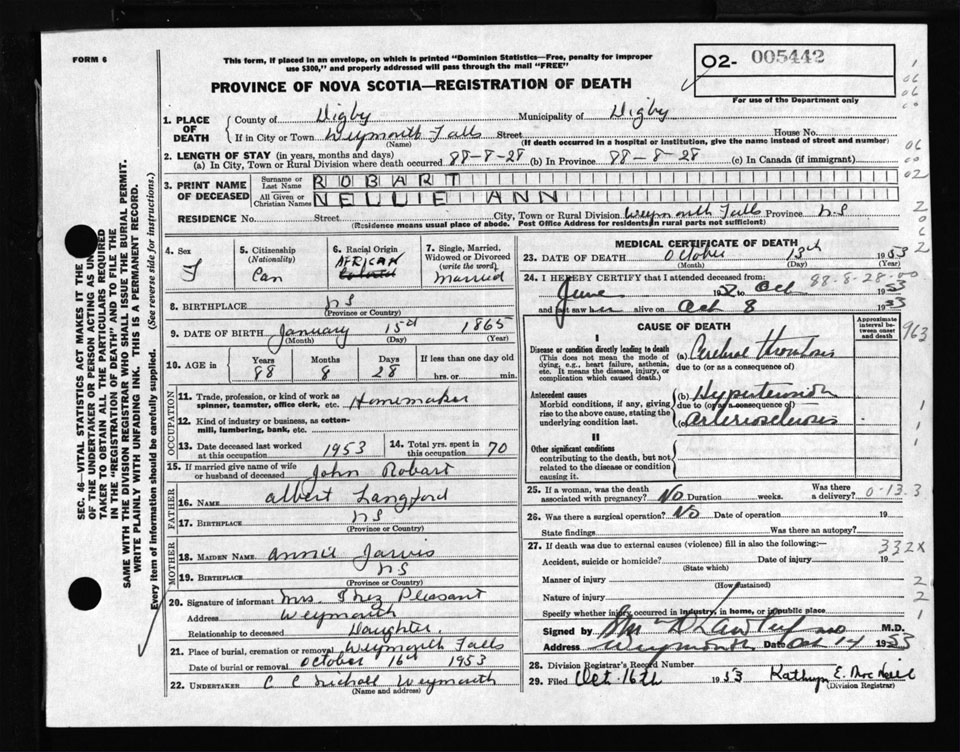 FORM 6
This form, if placed in an envelope, on which is printed "Dominion Statistics—Free, penalty for improper
use $300," and properly addressed will pass through the mail "FREE"
O2- 005442
For use of the Department only
PROVINCE OF NOVA SCOTIA—REGISTRATION OF DEATH
1. PLACE OF DEATH
County of Digby Municipality of Digby
If in City or Town Weymouth Falls Street House No.
(Name) (If death occurred in a hospital or institution, give the name instead of street and number)
2. LENGTH OF STAY (in years, months and days)
(a) In City, Town or Rural Division where death occurred 88-8-28 (b) In Province 88-8-28 (c) In Canada (if immigrant)
3. PRINT NAME OF DECEASED
Surname or Last Name ROBART
All Given or Christian Names NELLIE ANN
RESIDENCE No. Street City, Town or Rural Division Weymouth Falls Province N.S
(Residence means usual place of abode. Post Office Address for residents in rural parts not sufficient)
4. Sex F
5. Citizenship (Nationality) Can
6. Racial Origin AFRICAN Colored
7. Single, Married, Widowed or Divorced (write the word) Married
8. BIRTHPLACE N S
(Province or Country)
9. DATE OF BIRTH January 15th 1865
(Month) (Day) (Year)
10. AGE in Years 88 Months 8 Days 28 If less than one day old hrs. or min.
OCCUPATION
11. Trade, profession, or kind of work as spinner, teamster, office clerk, etc. Homemaker
12. Kind of industry or business, as cotton-mill, lumbering, bank, etc.
13. Date deceased last worked at this occupation 1953
14. Total yrs. spent in this occupation 70
15. If married give name of wife or husband of deceased John Robart
FATHER
16. NAME Albert Langford
17. BIRTHPLACE N S
(Province or Country)
MOTHER
18. MAIDEN NAME Annie Jarvis
19. BIRTHPLACE N S
(Province or Country)
20. Signature of informant Mrs. Inez Pleasant
Address Weymouth
Relationship to deceased Daughter.
21. Place of burial, cremation or removal Weymouth Falls
Date of burial or removal October 16th 1953
22. UNDERTAKER C C Nichall Weymouth
(Name and address)
MEDICAL CERTIFICATE OF DEATH
23. DATE OF DEATH October 13th 1953
(Month) (Day) (Year)
88-8-28-00
24. I HEREBY CERTIFY that I attended deceased from:
June 195 to Oct 1953
and last saw her alive on Oct 8 1953
CAUSE OF DEATH
Approximate interval between onset and death
963
I
Disease or condition directly leading to death
(This does not mean the mode of dying, e.g., heart failure, asthenia, etc. It means the disease, injury, or complication which caused death.)
(a) Cerebral thrombosis
due to (or as a consequence of)
Antecedent causes
Morbid conditions, if any, giving rise to the above cause, stating the underlying condition last.
(b) Hypertension
due to (or as a consequence of)
(c) Arteriosclerosis
II
Other significant conditions
contributing to the death, but not related to the disease or condition causing it.
25. If a woman, was the death associated with pregnancy? No Duration weeks. Was there a delivery? 0-13.3
26. Was there a surgical operation? No Date of operation 19
State findings Was there an autopsy?
27. If death was due to external causes (violence) fill in also the following:— 332X
Accident, suicide or homicide? Date of injury 19
(State which)
Manner of injury
(How sustained)
Nature of injury
Specify whether injury occurred in industry, in home, or in public place
Signed by M.D.
Address Weymouth Date Oct 14 1953
28. Division Registrar's Record Number
29. Filed Oct. 16th 1953 Kathryn E. MacNeil
(Division Registrar)
SEC. 46—VITAL STATISTICS ACT MAKES IT THE
OF THE UNDERTAKER OR PERSON ACTING AS UN
TAKER TO OBTAIN ALL THE PARTICULARS REQUIRED
IN THE "REGISTRATION OF DEATH" AND TO FILE THE
SAME WITH THE DIVISION REGISTRAR WHO SHALL ISSUE THE BURIAL PERMIT.
WRITE PLAINLY WITH UNFADING INK. THIS IS A PERMANENT RECORD.
Every item of information should be carefully supplied. (See reverse side for instructions.)